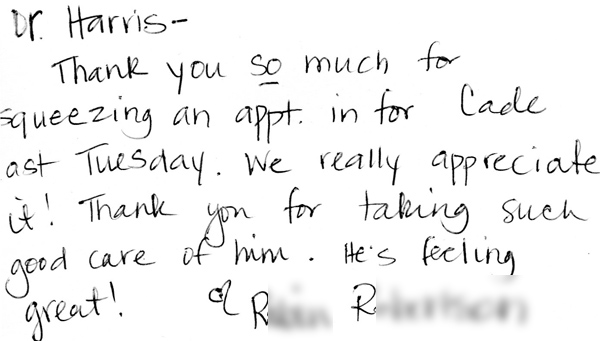 Dr. Harris-
Thank you so much for
squeezing an appt. in for Cade
ast Tuesday. We really appreciate
it! Thank you for taking such
good care of him. He's feeling
great! R R